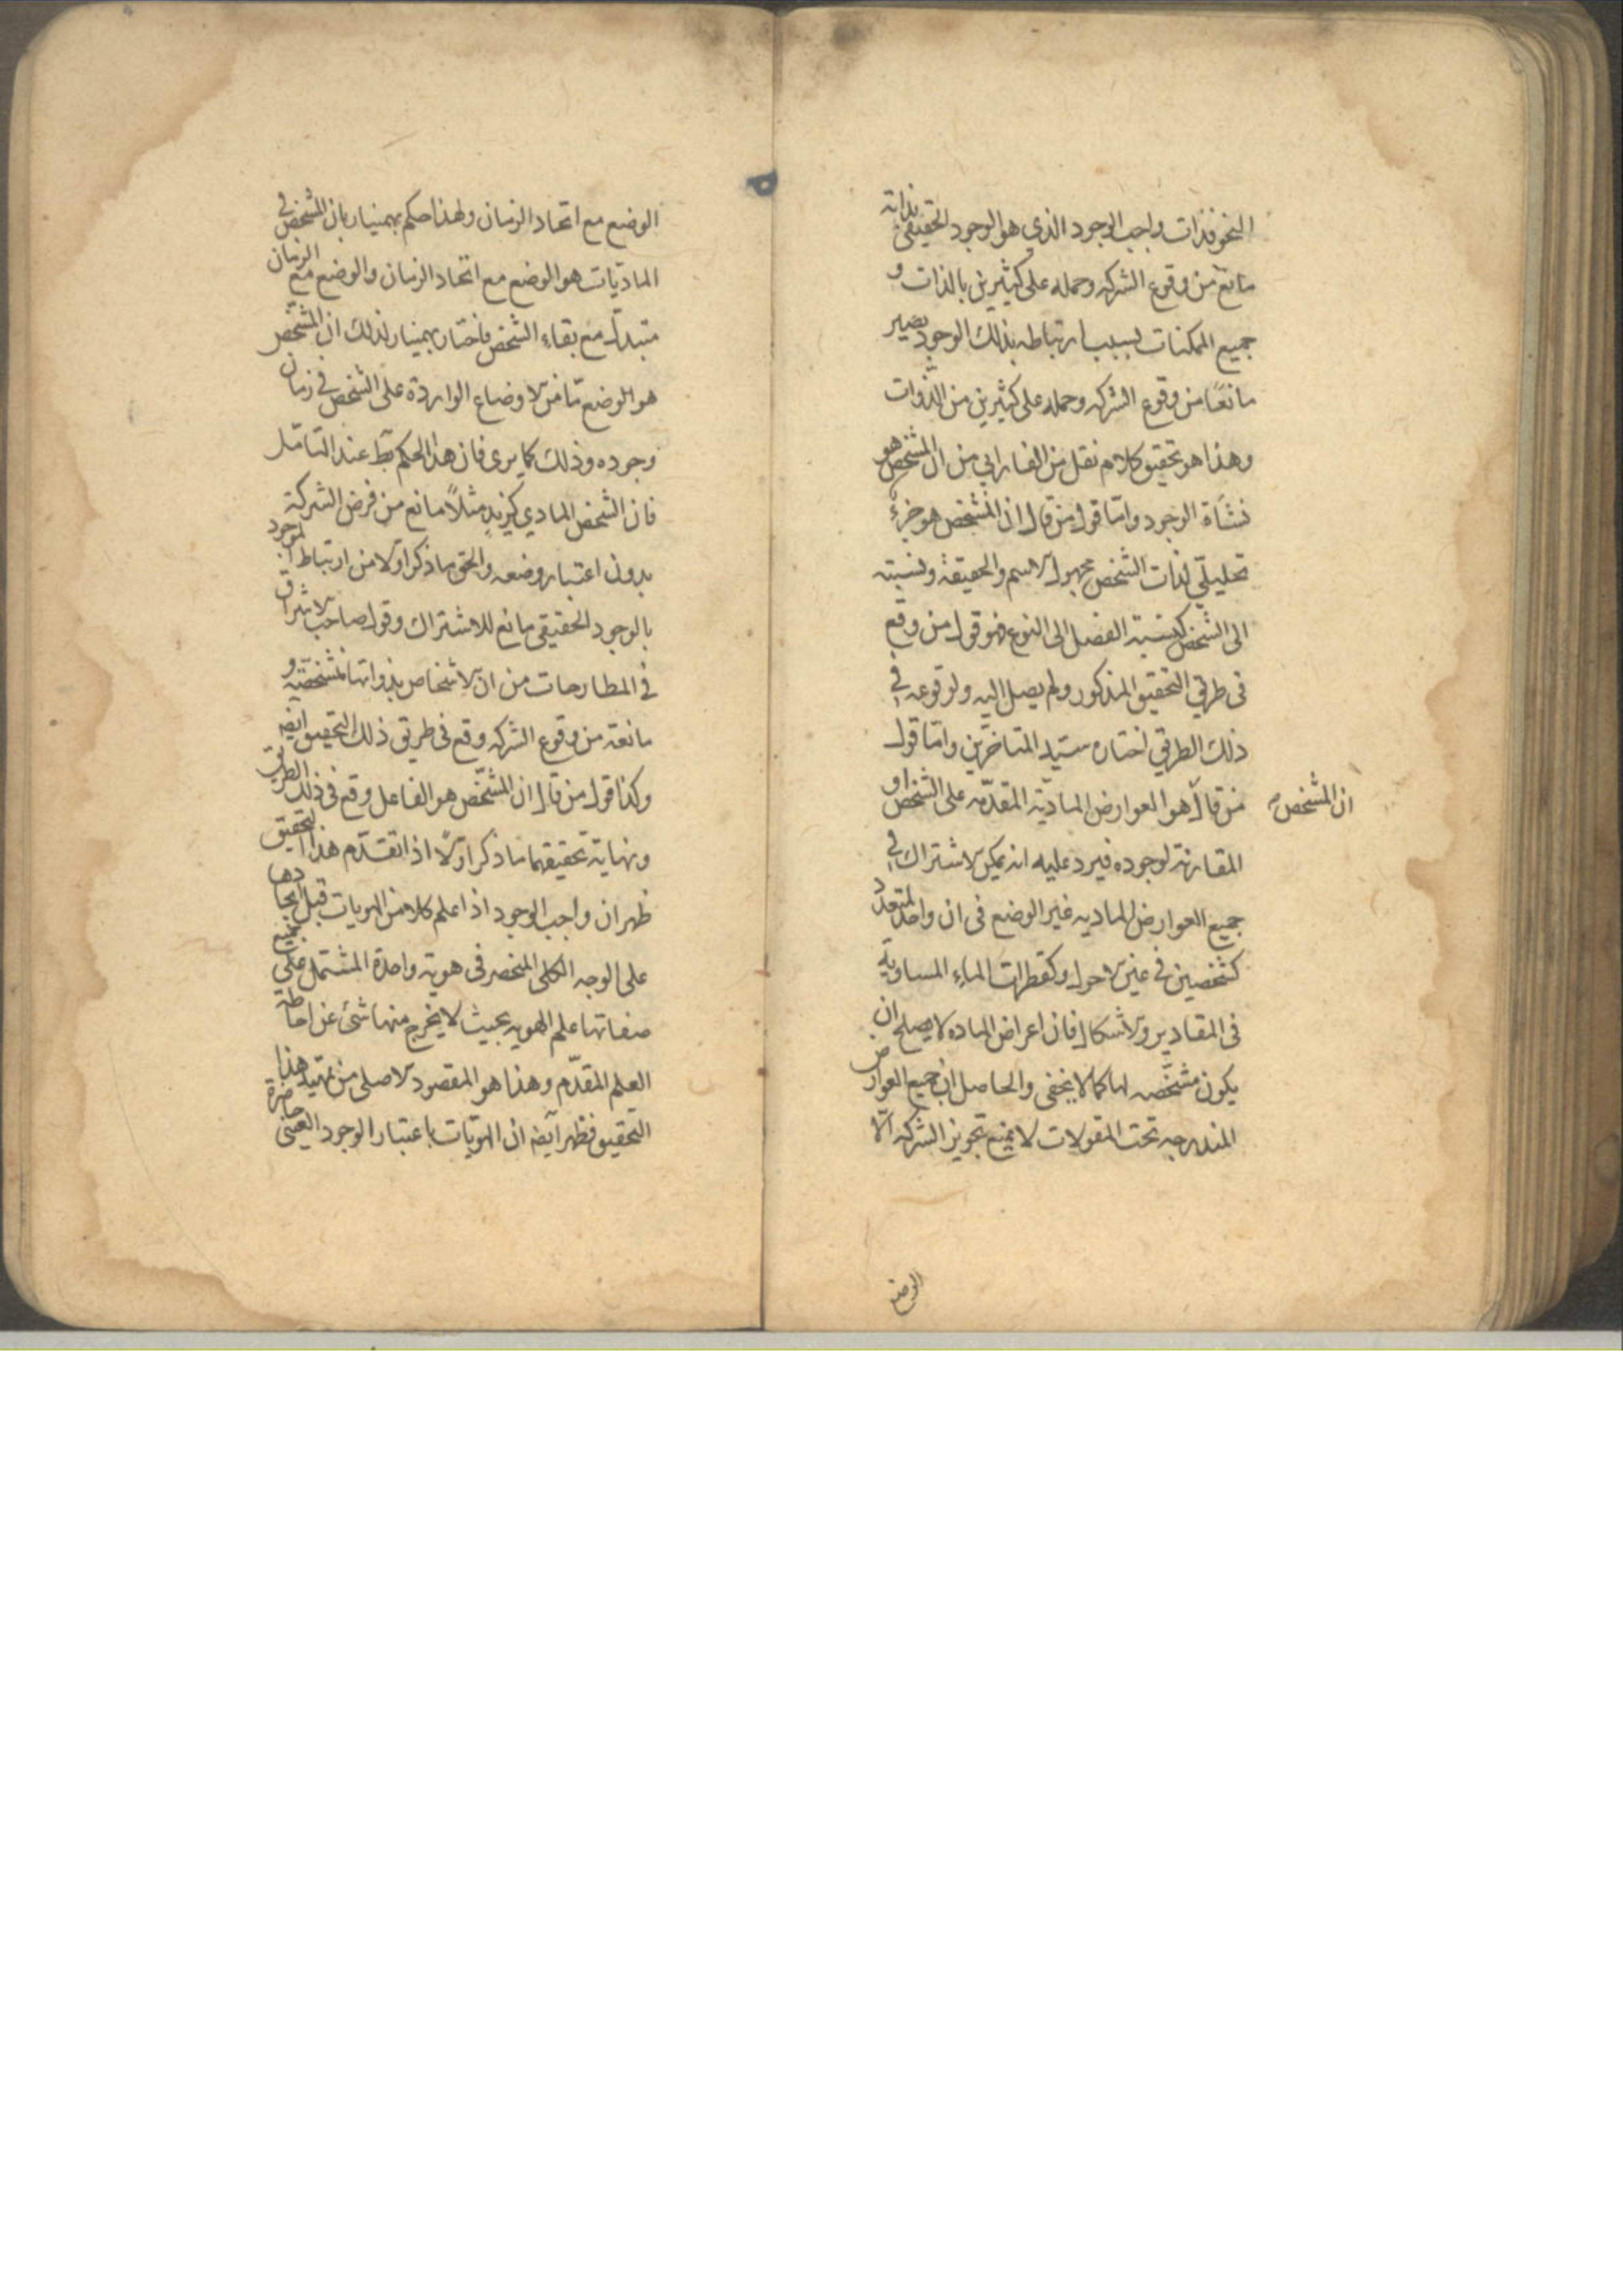 النحو فذات واجب الوجود الذي هو الوجود الحقيقي بذاته
مانع من وقوع الشركه وحمله على كثيرين بالذات و
جميع الممكنات بسبب ارتباطه بذلك الوجود يصير
مانعًا من وقوع الشركه وحمله على كثيرين من الذوات
وهذا هو تحقيق كلام نقل من الفارابي من ان المشخص هو
نشأة الوجود وامّا قول من قال ان المشخص هو جزء
تحليلّي لذات الشخص مجهول الاسم والحقيقة ونسبته
الى الشخص كنسبته الفصل الى النوع فهو قول من وقع
فى طريق التحقيق المذكور ولم يصل اليه ولوقوعه في
ذلك الطريق اختاره سيّد المتاخّرين وامّا قول
من قال ان المشخص هو العوارض الماديّة المقدّمه على الشخص او
المقارنة لوجوده فيرد عليه انه يمكن الاشتراك في
جميع العوارض الماديه غير الوضع فى ان واحد لمتعدد
كشخصين في عين الاحول وكقطرات الماء المساوية
فى المقادير والاشكال فان اعراض الماده لا يصلح ان
يكون مشخّصه لها كما لا يخفى والحاصل ان جميع العوارض
المندرجه تحت المقولات لا يمنع تجويز الشركه الّا
الوضع
الوضع مع اتحاد الزمان ولهذا حكم بهمنيار بان المشخص في
الماديّات هو الوضع مع اتحاد الزمان والوضع مع الزمان
متبدل مع بقاء الشخص فاختار بهمنيار لذلك ان المشخّص
هو الوضع مّا من الاوضاع الواردة على الشخص في زمان
وجوده وذلك كما يرى فان هذا الحكم عند التامّل
فان الشخص المادي كزيد مثلاً مانع من فرض الشركة
بدون اعتبار وضعه والحق ما ذكر اولا من ارتباط الموجود
بالوجود الحقيقي مانع للاشتراك وقول صاحب الاشراق
في المطارحات من ان الاشخاص بذواتها متشخصّة و
مانعة من وقوع الشركه وقع فى طريق ذلك التحقيق ايضا
وكذا قول من قال ان المشخّص هو الفاعل وقع فى ذلك الطريق
ونهاية تحقيقهما ما ذكر اوّلاً اذا تقدّم هذا التحقيق
ظهر ان واجب الوجود اذا علم كلا من الهويات قبل ايجادها
على الوجه الكلى المنحصر فى هويّة واحدة المشتمل على جميع
صفاتها علم الهويه بحيث لا يخرج منها شئ عن احاطة
العلم المقدّم وهذا هو المقصود الاصلى من تمهيد هذا
التحقيق فظهر ايضا ان الهويّات باعتبار الوجود العينى حاضرة